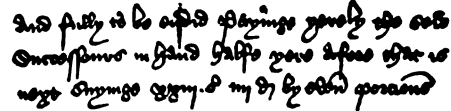 And fully to be paid Payinge yerely the said
Successours in hand halfe yere afore that is
next suyinge xxiii s iiii d by even porcions